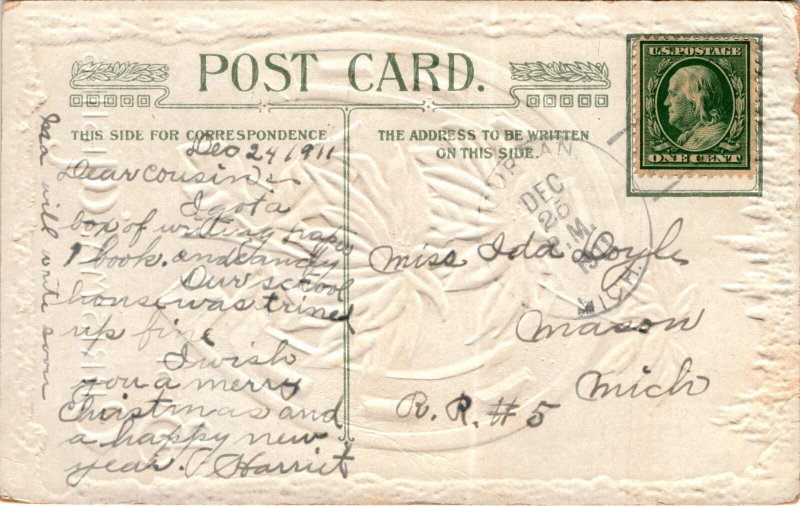 POST CARD.
THIS SIDE FOR CORRESPONDENCE
THE ADDRESS TO BE WRITTEN
ON THIS SIDE.
U.S. POSTAGE
ONE CENT
MORGAN
DEC
25
M.
1911
MICH.
Dec 24 1911
Dear cousin's
I got a
box of writing paper
1 book. and candy
Our school
house was trined
up fine
I wish
you a merry
Christmas and
a happy new
year. Harriet
will write soon
Miss Ida Doyle
Mason
Mich
R.R. #5